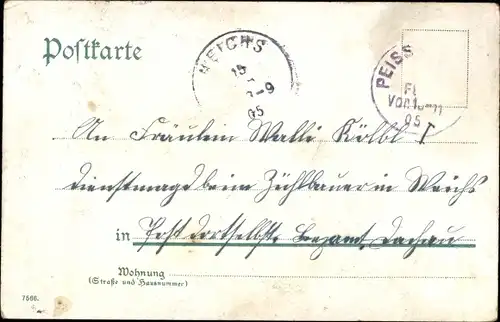 Postkarte
WEICHS
15
7-9
05
PEISS
VOR 10-11
05
An Fräulein Walli Kölbl
Dienstmagd beim Zühlbauer in Weichs
in Post dortselbst Bezamt Dachau
Wohnung
(Straße und Hausnummer)
7566.